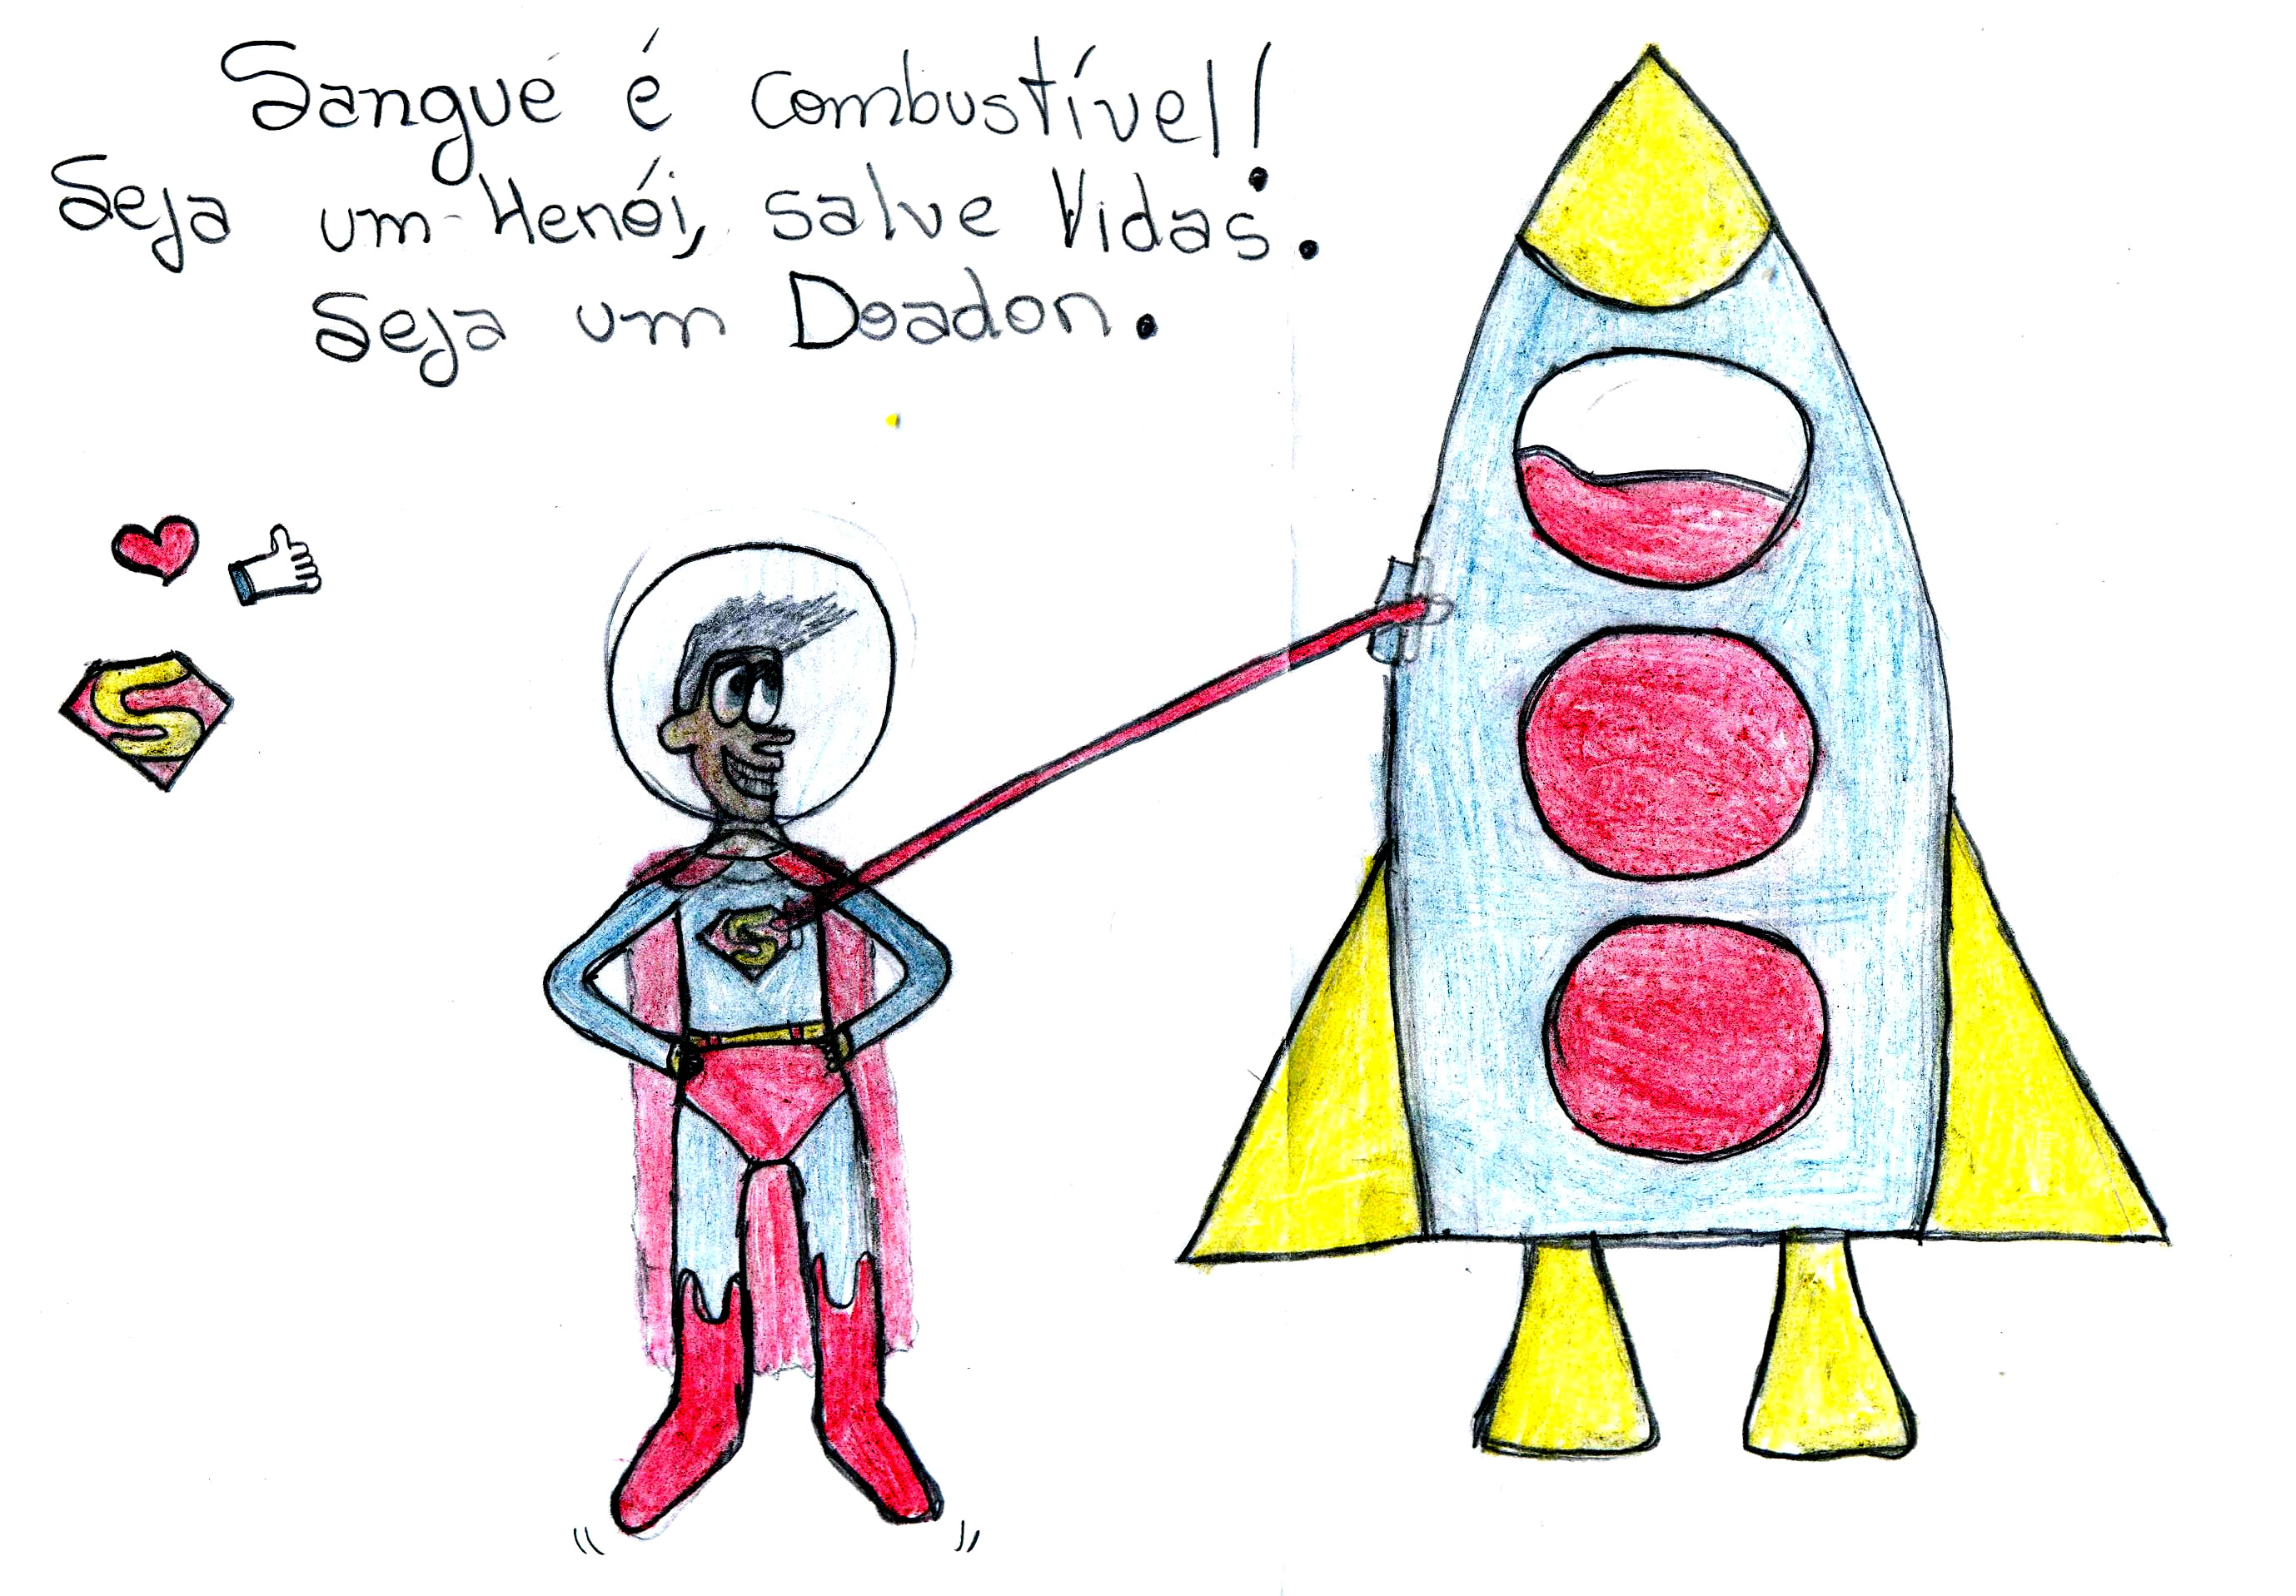 Sangue é combustível!
Seja um Herói, salve Vidas.
Seja um Doador.
S
S